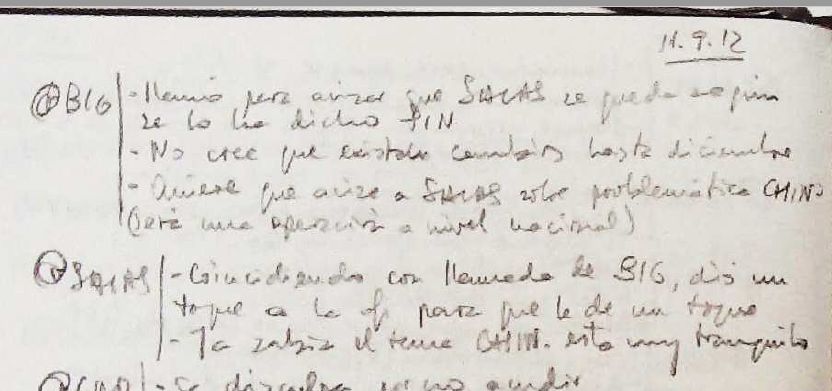 11.9.12
BIG - Llamó para avisar que SALAS se queda según
se lo ha dicho PIN
- No cree que existan cambios hasta diciembre
- Quiere que avise a SALAS sobre problemática CHINO
(será una operación a nivel nacional)
SALAS - Coincidiendo con llamada de BIG, dió un
toque a la of para que le de un toque
- Ya sabía el tema CHIN. esta muy tranquilo
- Se disculpa no